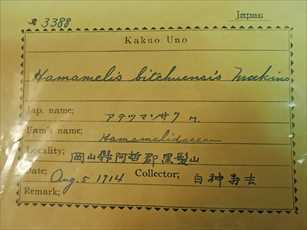 № 3388 Japan
Kakuo Uno
Hamamelis bitchuensis Makino
Jap. name; アテツマンサク
Fam's name; Hamamelidaceae
Locality; 岡山縣阿哲郡黒髪山
Date; Aug. 5 1914 Collector; 白神寿吉
Remark;